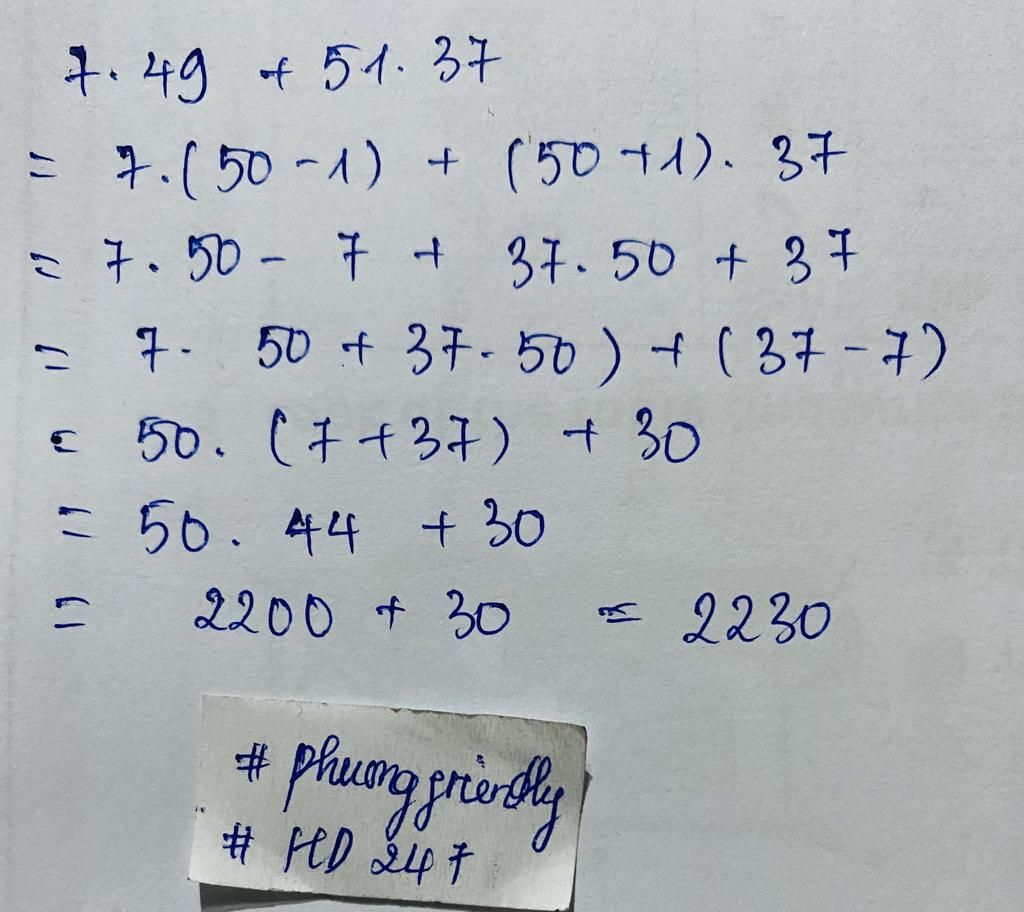 7. 49 + 51. 37
= 7.(50 - 1) + (50 + 1). 37
= 7. 50 - 7 + 37. 50 + 37
= 7. 50 + 37. 50) + (37 - 7)
= 50. (7 + 37) + 30
= 50. 44 + 30
= 2200 + 30 = 2230
# phuonggriendly
# HD 247